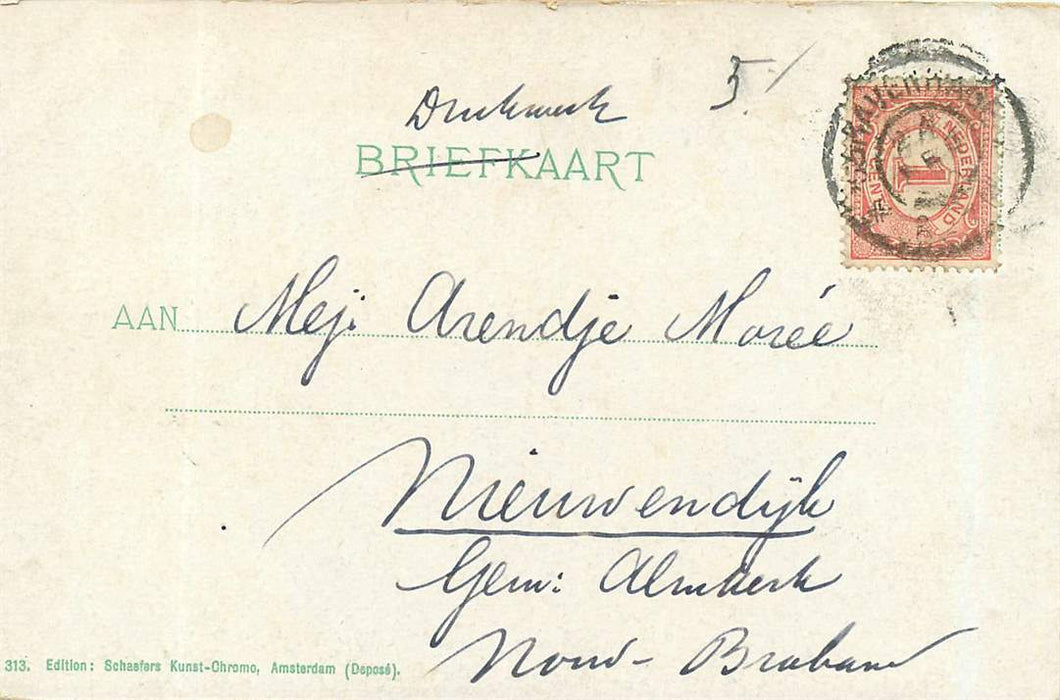 5
Drukwerk
BRIEFKAART
NEDERLAND
1
AAN Mej. Arendje Morée
Nieuwendijk
Gem: Almkerk
Noord-Brabant
313. Edition: Schaefers Kunst-Chromo, Amsterdam (Deposé).